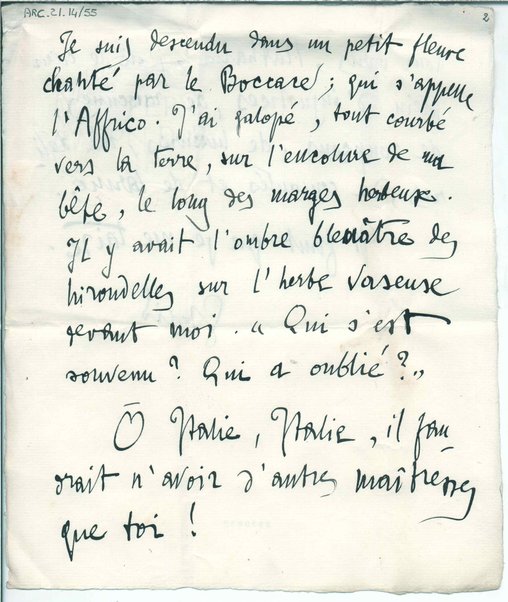 ARC.21.14/55
2
Je suis descendu dans un petit fleuve
chanté par le Boccace ; qui s'appelle
l'Affrico. J'ai galopé, tout courbé
vers la terre, sur l'encolure de ma
bête, le long des marges herbeuse.
Il y avait l'ombre bleuâtre des
hirondelles sur l'herbe vaseuse
devant moi. « Qui s'est
souvenu ? Qui a oublié ? »
Ô Italie, Italie, il fau
drait n'avoir d'autres maîtresses
que toi !